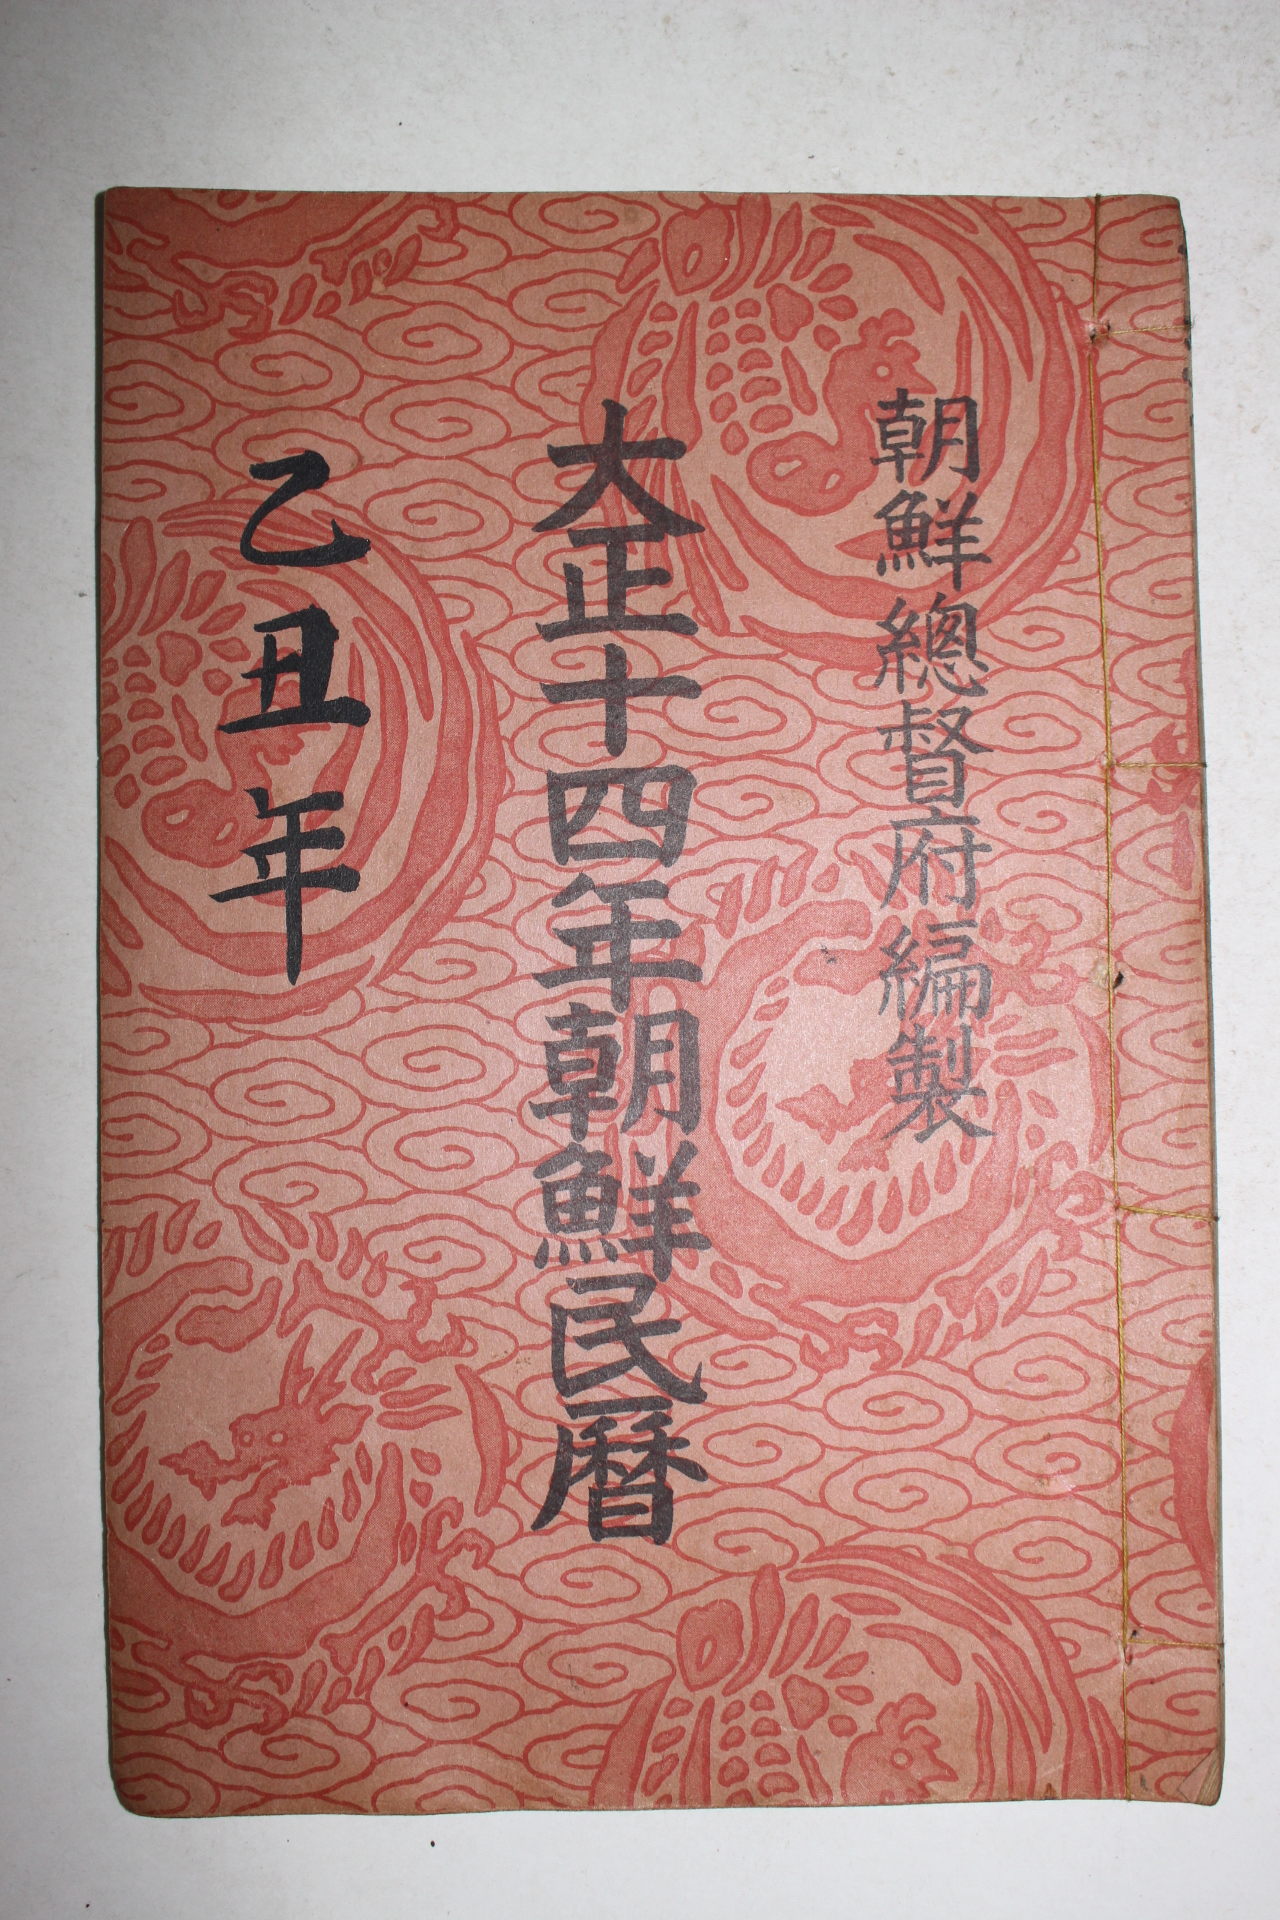 朝鮮總督府編製
大正十四年朝鮮民曆
乙丑年